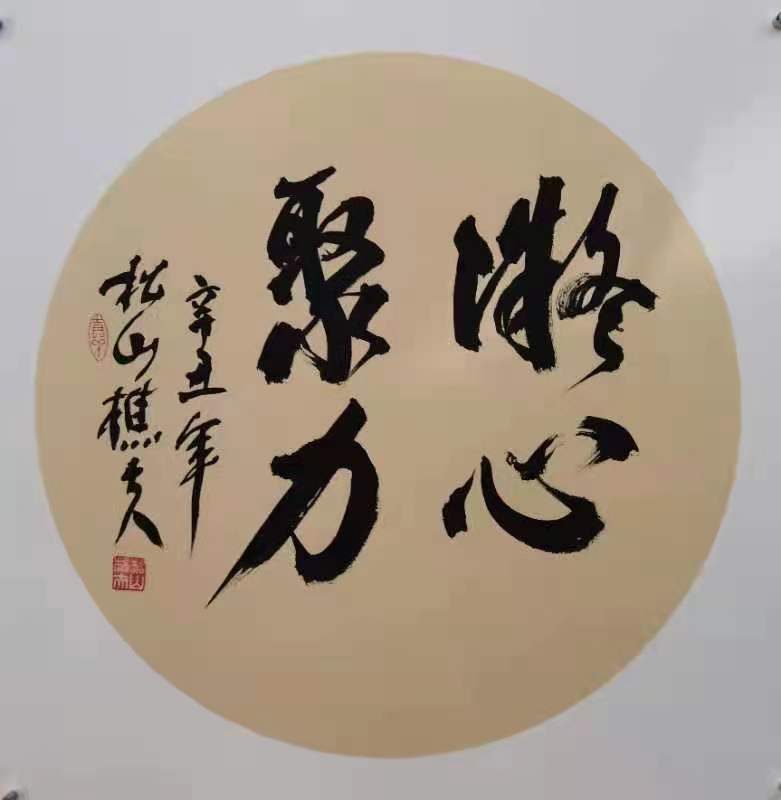 凝心
聚力
辛丑年
松山樵夫